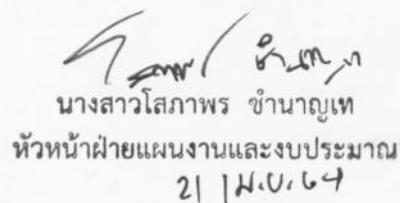 นางสาวโสภาพร ชำนาญเท
หัวหน้าฝ่ายแผนงานและงบประมาณ
21 เม.ย. 64